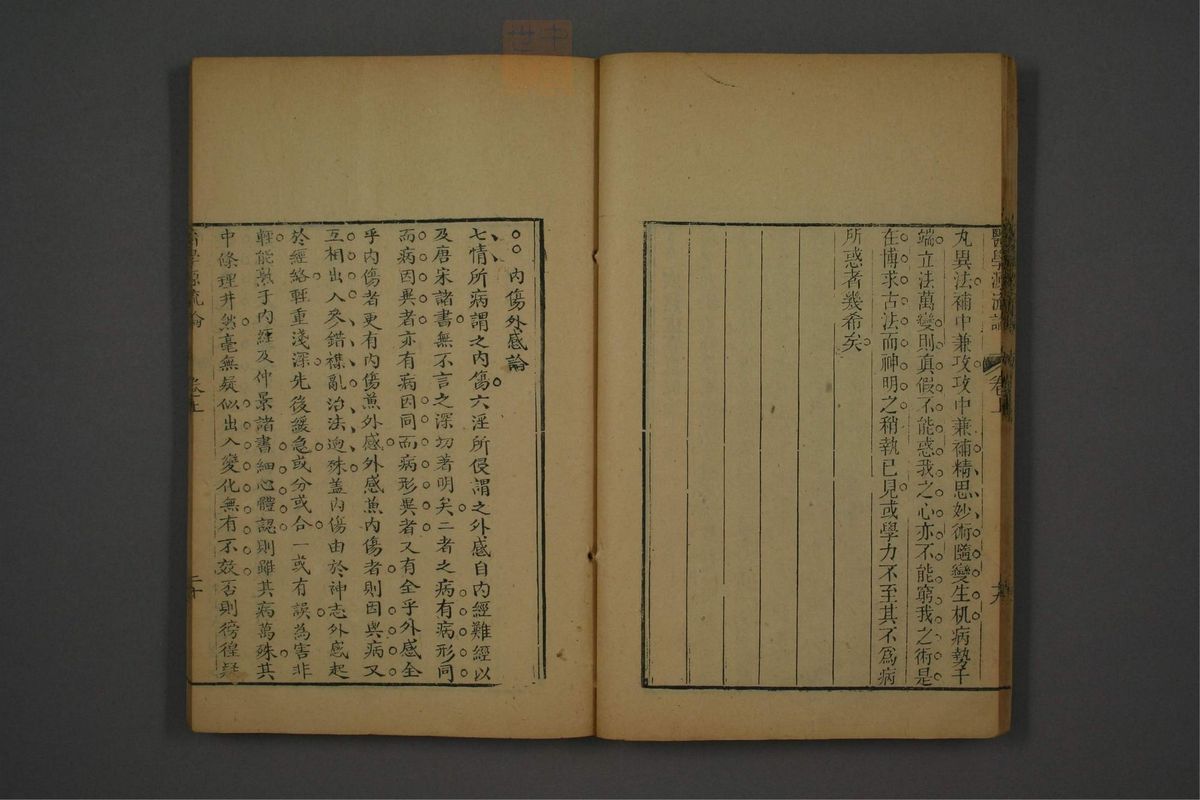 醫學源流論 卷上
丸異法補中兼攻攻中兼補精思妙術隨變生机病勢千
端立法萬變則真假不能惑我之心亦不能窮我之術是
在博求古法而神明之稍執已見或學力不至其不爲病
所惑者幾希矣
內傷外感論
七情所病謂之內傷六淫所侵謂之外感自內經難經以
及唐宋諸書無不言之深切著明矣二者之病有病形同
而病因異者亦有病因同而病形異者又有全乎外感全
乎內傷者更有內傷兼外感外感兼內傷者則因與病又
互相出入參錯襍亂治法逈殊蓋內傷由於神志外感起
於經絡輕重淺深先後緩急或分或合一或有誤為害非
輕能熟于內經及仲景諸書細心體認則雖其病萬殊其
中條理井然毫無疑似出入變化無有不效否則徬徨疑